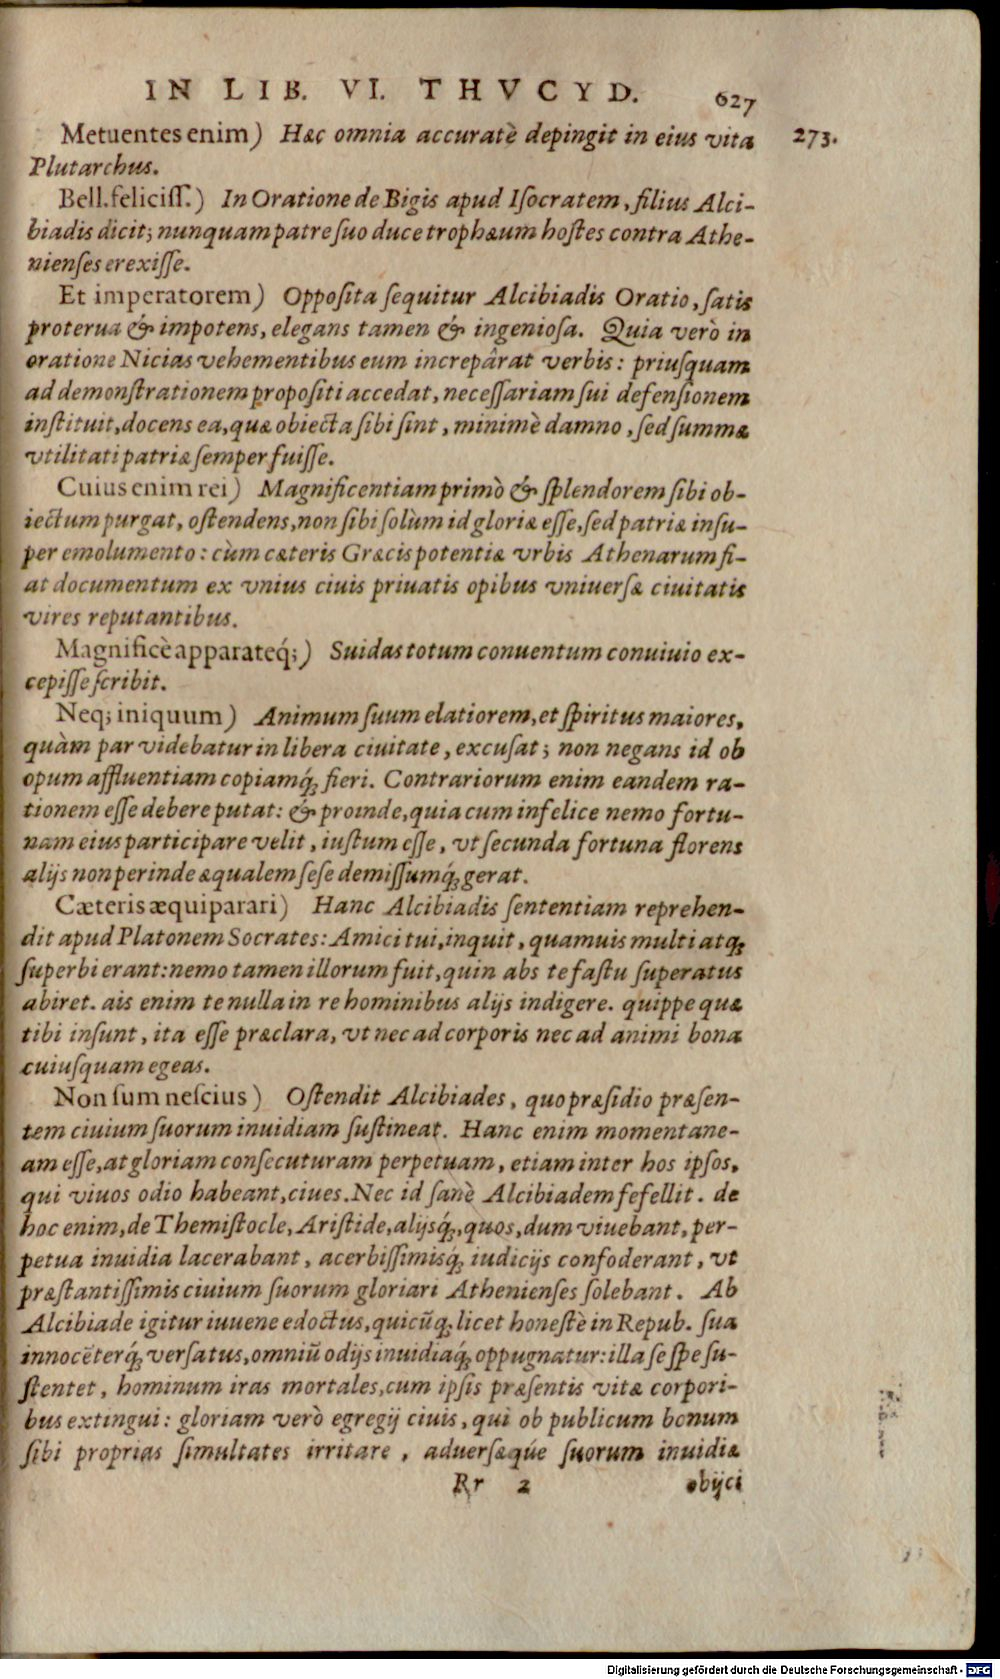 IN LIB. VI. THVCYD. 627
Metuentes enim) Hæc omnia accuratè depingit in eius vita 273.
Plutarchus.
Bell. feliciſſ.) In Oratione de Bigis apud Iſocratem, filius Alci-
biadis dicit; nunquam patre ſuo duce trophæum hoſtes contra Athe-
nienſes erexiſſe.
Et imperatorem) Oppoſita ſequitur Alcibiadis Oratio, ſatis
proterua & impotens, elegans tamen & ingenioſa. Quia verò in
oratione Nicias vehementibus eum increpârat verbis: priuſquam
ad demonſtrationem propoſiti accedat, neceſſariam ſui defenſionem
inſtituit, docens ea, quæ obiecta ſibi ſint, minimè damno, ſed ſummæ
vtilitati patriæ ſemper fuiſſe.
Cuius enim rei) Magnificentiam primò & ſplendorem ſibi ob-
iectum purgat, oſtendens, non ſibi ſolùm id gloriæ eſſe, ſed patriæ inſu-
per emolumento: cùm cæteris Græcis potentiæ vrbis Athenarum fi-
at documentum ex vnius ciuis priuatis opibus vniuerſæ ciuitatis
vires reputantibus.
Magnificè apparateq́;) Suidas totum conuentum conuiuio ex-
cepiſſe ſcribit.
Neq; iniquum) Animum ſuum elatiorem, et ſpiritus maiores,
quàm par videbatur in libera ciuitate, excuſat; non negans id ob
opum affluentiam copiamq́; fieri. Contrariorum enim eandem ra-
tionem eſſe debere putat: & proinde, quia cum infelice nemo fortu-
nam eius participare velit, iuſtum eſſe, vt ſecunda fortuna florens
alijs non perinde æqualem ſeſe demiſſumq́; gerat.
Cæteris æquiparari) Hanc Alcibiadis ſententiam reprehen-
dit apud Platonem Socrates: Amici tui, inquit, quamuis multi atq;
ſuperbi erant: nemo tamen illorum fuit, quin abs te faſtu ſuperatus
abiret. ais enim te nulla in re hominibus alijs indigere. quippe quæ
tibi inſunt, ita eſſe præclara, vt nec ad corporis nec ad animi bona
cuiuſquam egeas.
Non ſum neſcius) Oſtendit Alcibiades, quo præſidio præſen-
tem ciuium ſuorum inuidiam ſuſtineat. Hanc enim momentane-
am eſſe, at gloriam conſecuturam perpetuam, etiam inter hos ipſos,
qui viuos odio habeant, ciues. Nec id ſanè Alcibiadem fefellit. de
hoc enim, de Themiſtocle, Ariſtide, alijsq́;, quos, dum viuebant, per-
petua inuidia lacerabant, acerbiſſimisq́; iudicijs confoderant, vt
præſtantiſſimis ciuium ſuorum gloriari Athenienſes ſolebant. Ab
Alcibiade igitur iuuene edoctus, quicũq; licet honeſtè in Repub. ſua
innocẽterq́; verſatus, omniũ odijs inuidiaq́; oppugnatur: illa ſe ſpe ſu-
ſtentet, hominum iras mortales, cum ipſis præſentis vitæ corpori-
bus extingui: gloriam verò egregij ciuis, qui ob publicum bonum
ſibi proprias ſimultates irritare, aduerſæqúe ſuorum inuidiæ
Rr 2 obijci
Digitalisierung gefördert durch die Deutsche Forschungsgemeinschaft - DFG